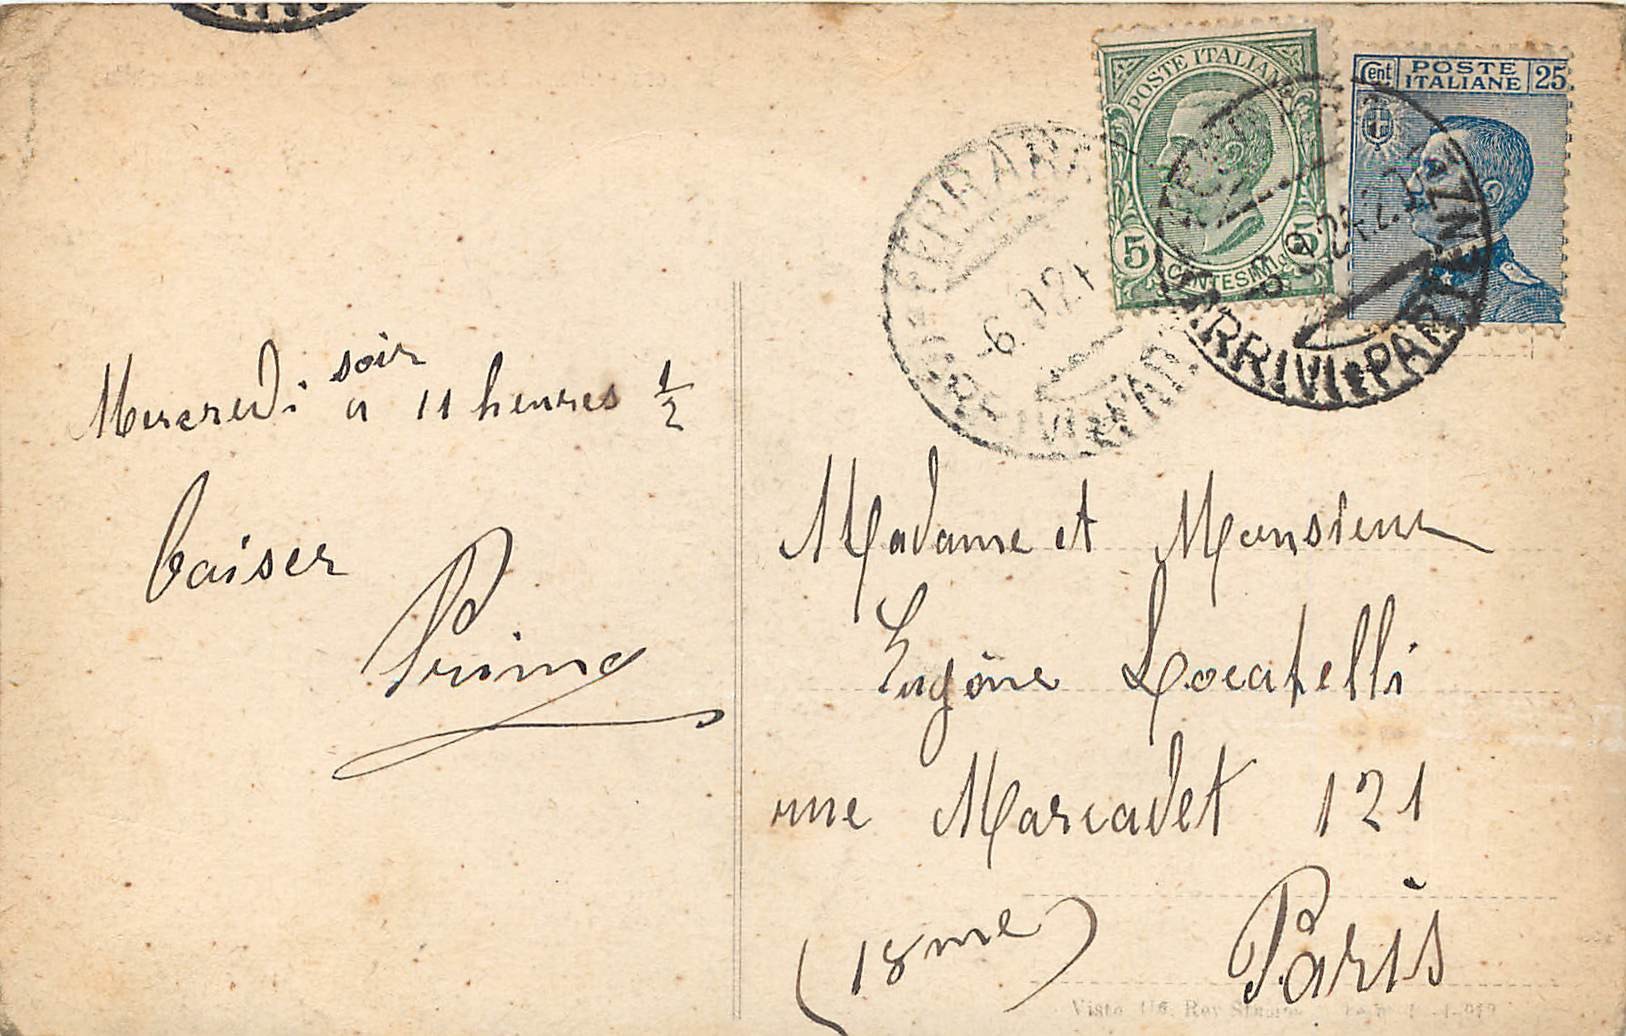 POSTE ITALIANE
5 CENTESIMI 5
Cent POSTE ITALIANE 25
FERRARA
-6.9.24
ARRIVI E PAR
Mercredi soir a 11 heures 1/2
baiser
Primo
Madame et Monsieur
Eugène Locatelli
rue Marcadet 121
(18me) Paris
Visto Uff. Rev.